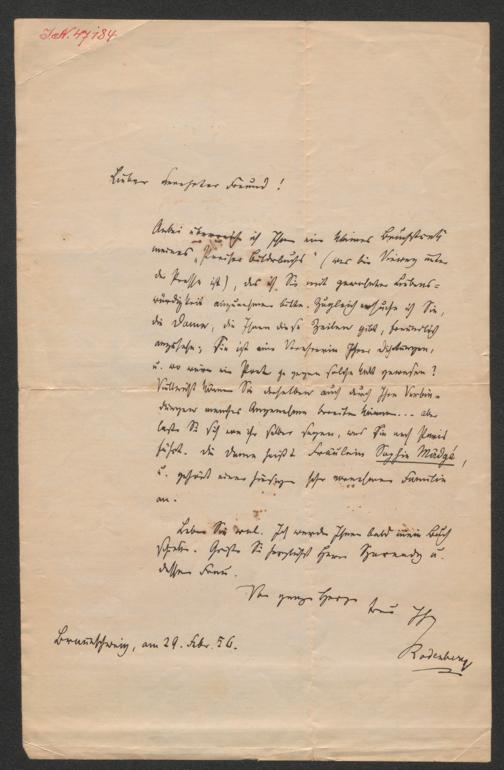 I.N. 47184
Lieber verehrter Freund!
Anbei überreich ich Ihnen ein kleines Bruchstück
meines „Pariser Bilderbuchs“ (was bei Vieweg unter
der Presse ist), das ich Sie mit gewohnter Liebens=
würdigkeit anzunehmen bitte. Zugleich ersuche ich Sie,
die Dame, die Ihnen diese Zeilen gibt, freundlich
; Sie ist eine Verehrerin Ihrer Dichtungen,
u. wo wäre ein Poet je gegen solche kalt gewesen?
Vielleicht können Sie derselben auch durch Ihre Verbin=
dungen manches Angenehme bereiten können... aber
lassen Sie sich von ihr selber sagen, was Sie nach Paris
führt. Die Dame heißt Fräulein Sophie Mädgé,
u. gehört einer hiesigen sehr Familie
an.
Leben Sie wol. Ich werde Ihnen bald mein Buch
schicken. Grüßen Sie herzlichst Herrn Szarvady u.
dessen Frau.
Von ganzem Herzen
treu Ihr
Rodenberg
Braunschweig, am 29. Febr. 56.